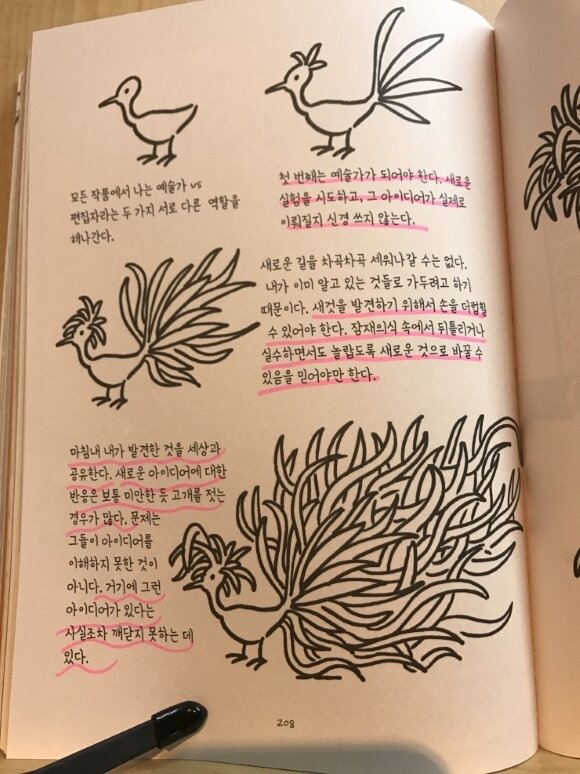 모든 작품에서 나는 예술가 vs
편집자라는 두 가지 서로 다른 역할을
해나간다.
첫 번째는 예술가가 되어야 한다. 새로운
실험을 시도하고, 그 아이디어가 실제로
이뤄질지 신경 쓰지 않는다.
새로운 길을 차곡차곡 세워나갈 수는 없다.
내가 이미 알고 있는 것들로 가두려고 하기
때문이다. 새것을 발견하기 위해서 손을 더럽힐
수 있어야 한다. 잠재의식 속에서 뒤틀리거나
실수하면서도 놀랍도록 새로운 것으로 바꿀 수
있음을 믿어야만 한다.
마침내 내가 발견한 것을 세상과
공유한다. 새로운 아이디어에 대한
반응은 보통 미안한 듯 고개를 젓는
경우가 많다. 문제는
그들이 아이디어를
이해하지 못한 것이
아니다. 거기에 그런
아이디어가 있다는
사실조차 깨닫지 못하는 데
있다.
208